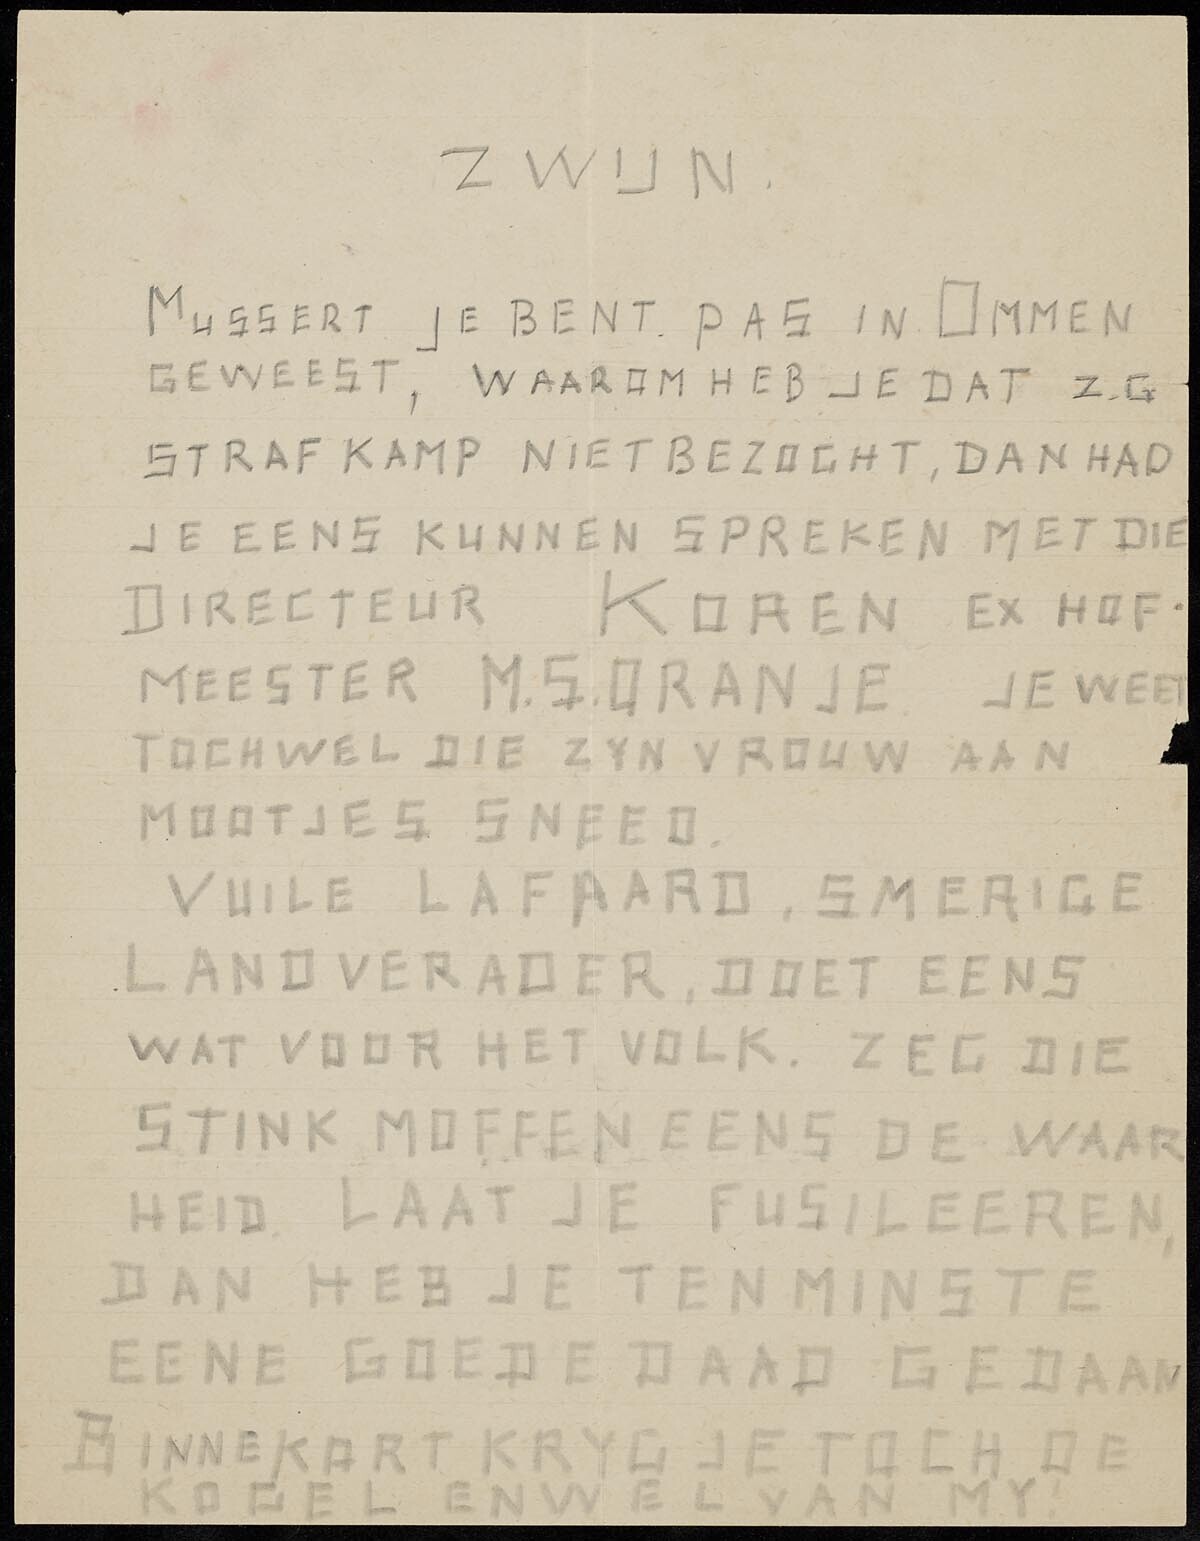 ZWIJN.
MUSSERT JE BENT. PAS IN OMMEN
GEWEEST, WAAROM HEB JE DAT Z.G
STRAFKAMP NIET BEZOCHT, DAN HAD
JE EENS KUNNEN SPREKEN MET DIE
DIRECTEUR KOREN EX HOF-
MEESTER M.S. ORANJE. JE WEET
TOCH WEL DIE ZYN VROUW AAN
MOOTJES SNEED.
VUILE LAFAARD, SMERIGE
LANDVERADER, DOET EENS
WAT VOOR HET VOLK. ZEG DIE
STINK MOFFEN EENS DE WAAR
HEID. LAAT JE FUSILEEREN,
DAN HEB JE TENMINSTE
EENE GOEDE DAAD GEDAAN
BINNEKORT KRYG JE TOCH DE
KOGEL EN WEL VAN MY!